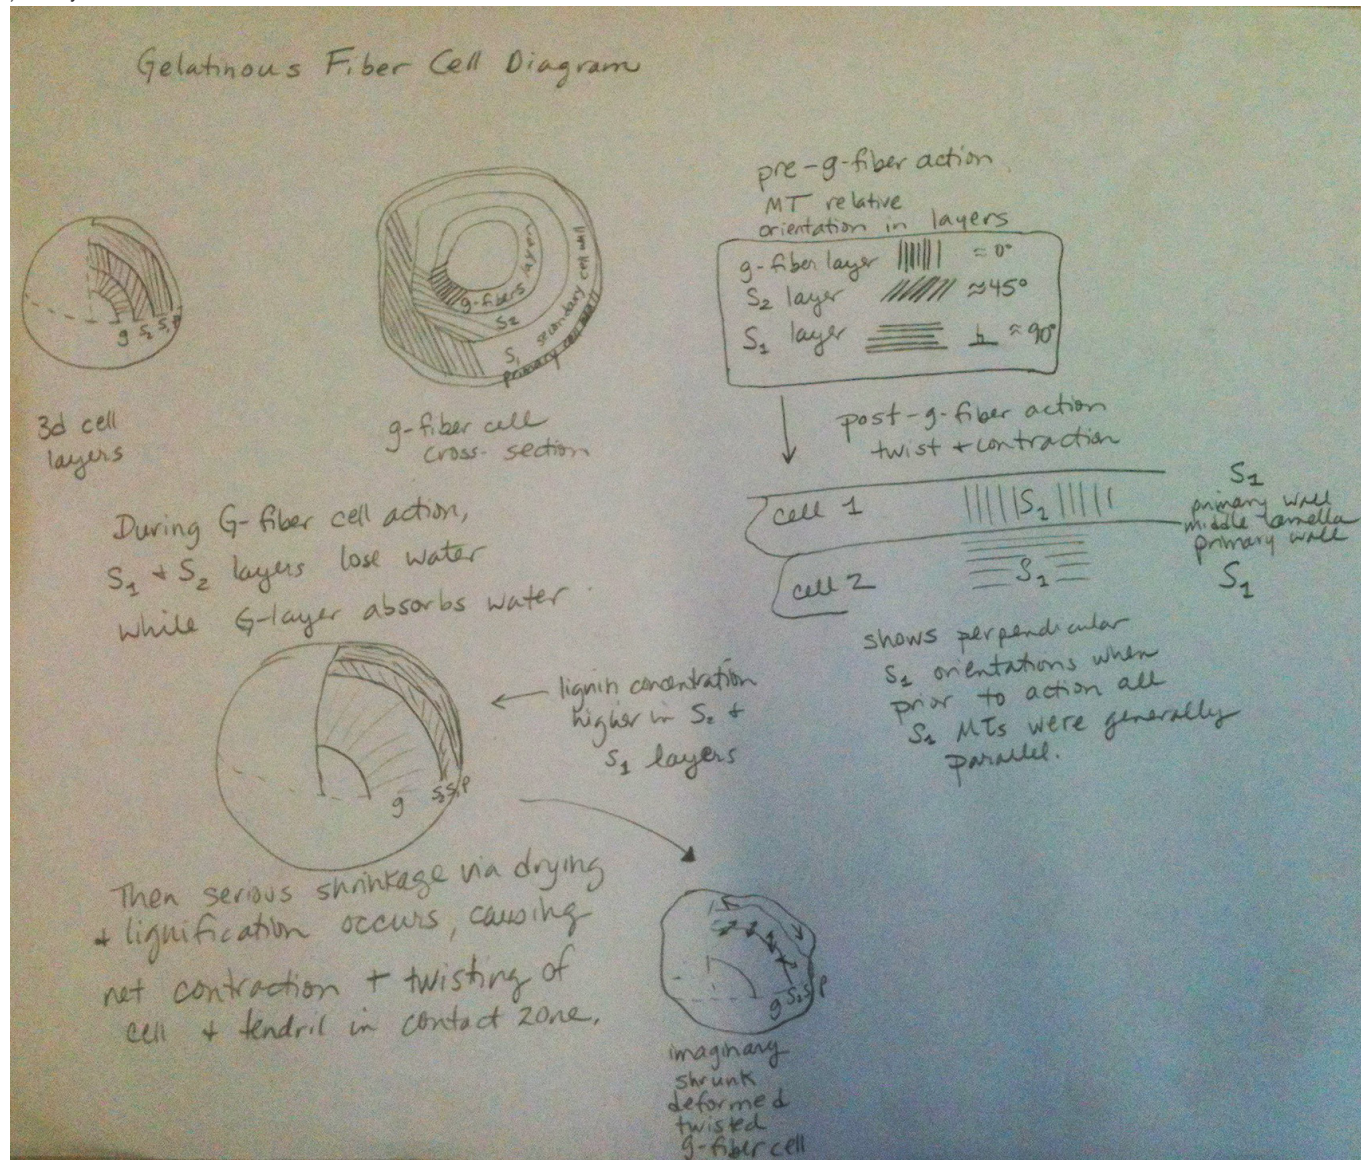 Gelatinous Fiber Cell Diagram
g S2 S1 P
3d cell
layers
g-fibers
S2
S1 secondary cell wall
primary cell wall
g-fiber cell
cross-section
pre-g-fiber action
MT relative
orientation in layers
g-fiber layer ≈ 0°
S2 layer ≈45°
S1 layer ≈ 90°
post-g-fiber action
twist + contraction
cell 1 S2
cell 2 S1
S1
primary wall
middle lamella
primary wall
S1
shows perpendicular
S1 orientations when
prior to action all
S1 MTs were generally
parallel.
During G-fiber cell action,
S1 + S2 layers lose water
while G-layer absorbs water.
g S2 S1 P
lignin concentration
higher in S2 +
S1 layers
Then serious shrinkage via drying
+ lignification occurs, causing
net contraction + twisting of
cell + tendril in contact zone.
g S2 S1 P
imaginary
shrunk
deformed
twisted
g-fiber cell